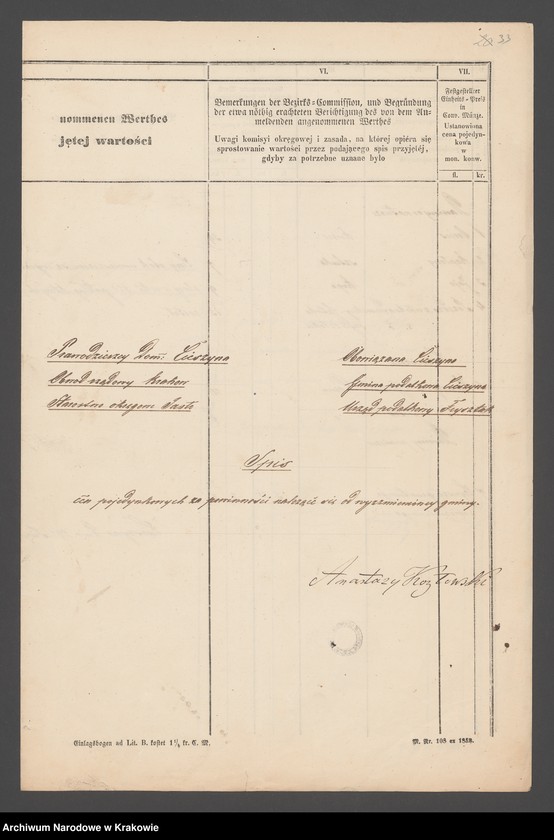 33
VI.
VII.
nommenen Werthes
jętej wartości
Bemerkungen der Bezirks-Commission, und Begründung
der etwa nöthig erachteten Berichtigung des von dem An-
meldenden angenommenen Werthes
Uwagi komisyi okręgowej i zasada, na której opiéra się
sprostowanie wartości przez podającego spis przyjętéj,
gdyby za potrzebne uznane było
Festgestellter
Einheits-Preis
in
Conv. Münze.
Ustanowiona
cena pojedyn-
kowa
w
mon. konw.
fl. kr.
Prawodzierzcy Dom: Cieszyna
Obowiązana Cieszyna
Obwod rządowy Krakow
Gmina podatkowa Cieszyna
Starostwo okręgowe Jasło
Urząd podatkowy Frysztak
Spis
cen pojedynkowych za powinności należące się od wyzmienionej gminy.
Anastazy Kozłowski
Einlagsbogen ad Lit. B. kostet 1 1/4 kr. C. M.
M. Nr. 108 ex 1853.
Archiwum Narodowe w Krakowie